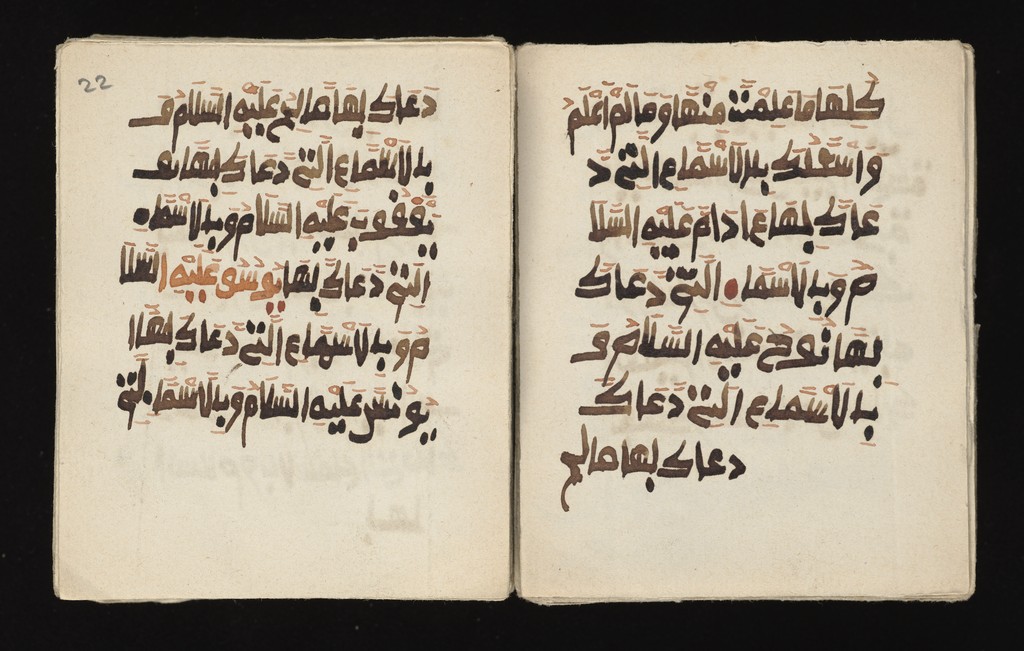 كلها ما علمت منها وما لم اعلم
واسءلك بالاسماء التي د
عاك بها ءادام عليه السلا
م وبالاسماء التي دعاك
بها نوح عليه السلام و
بالاسماء التي دعاك
دعاك بها صالح
22
دعاك بها صالح عليه السلام و
بالاسماء التي دعاك بها يو
يعقوب عليه السلام وبالاسماء
التي دعاك بها يوسو عليه السلا
م وبالاسماء التي دعاك بها ا
يونس عليه السلام وبالاسماء التي